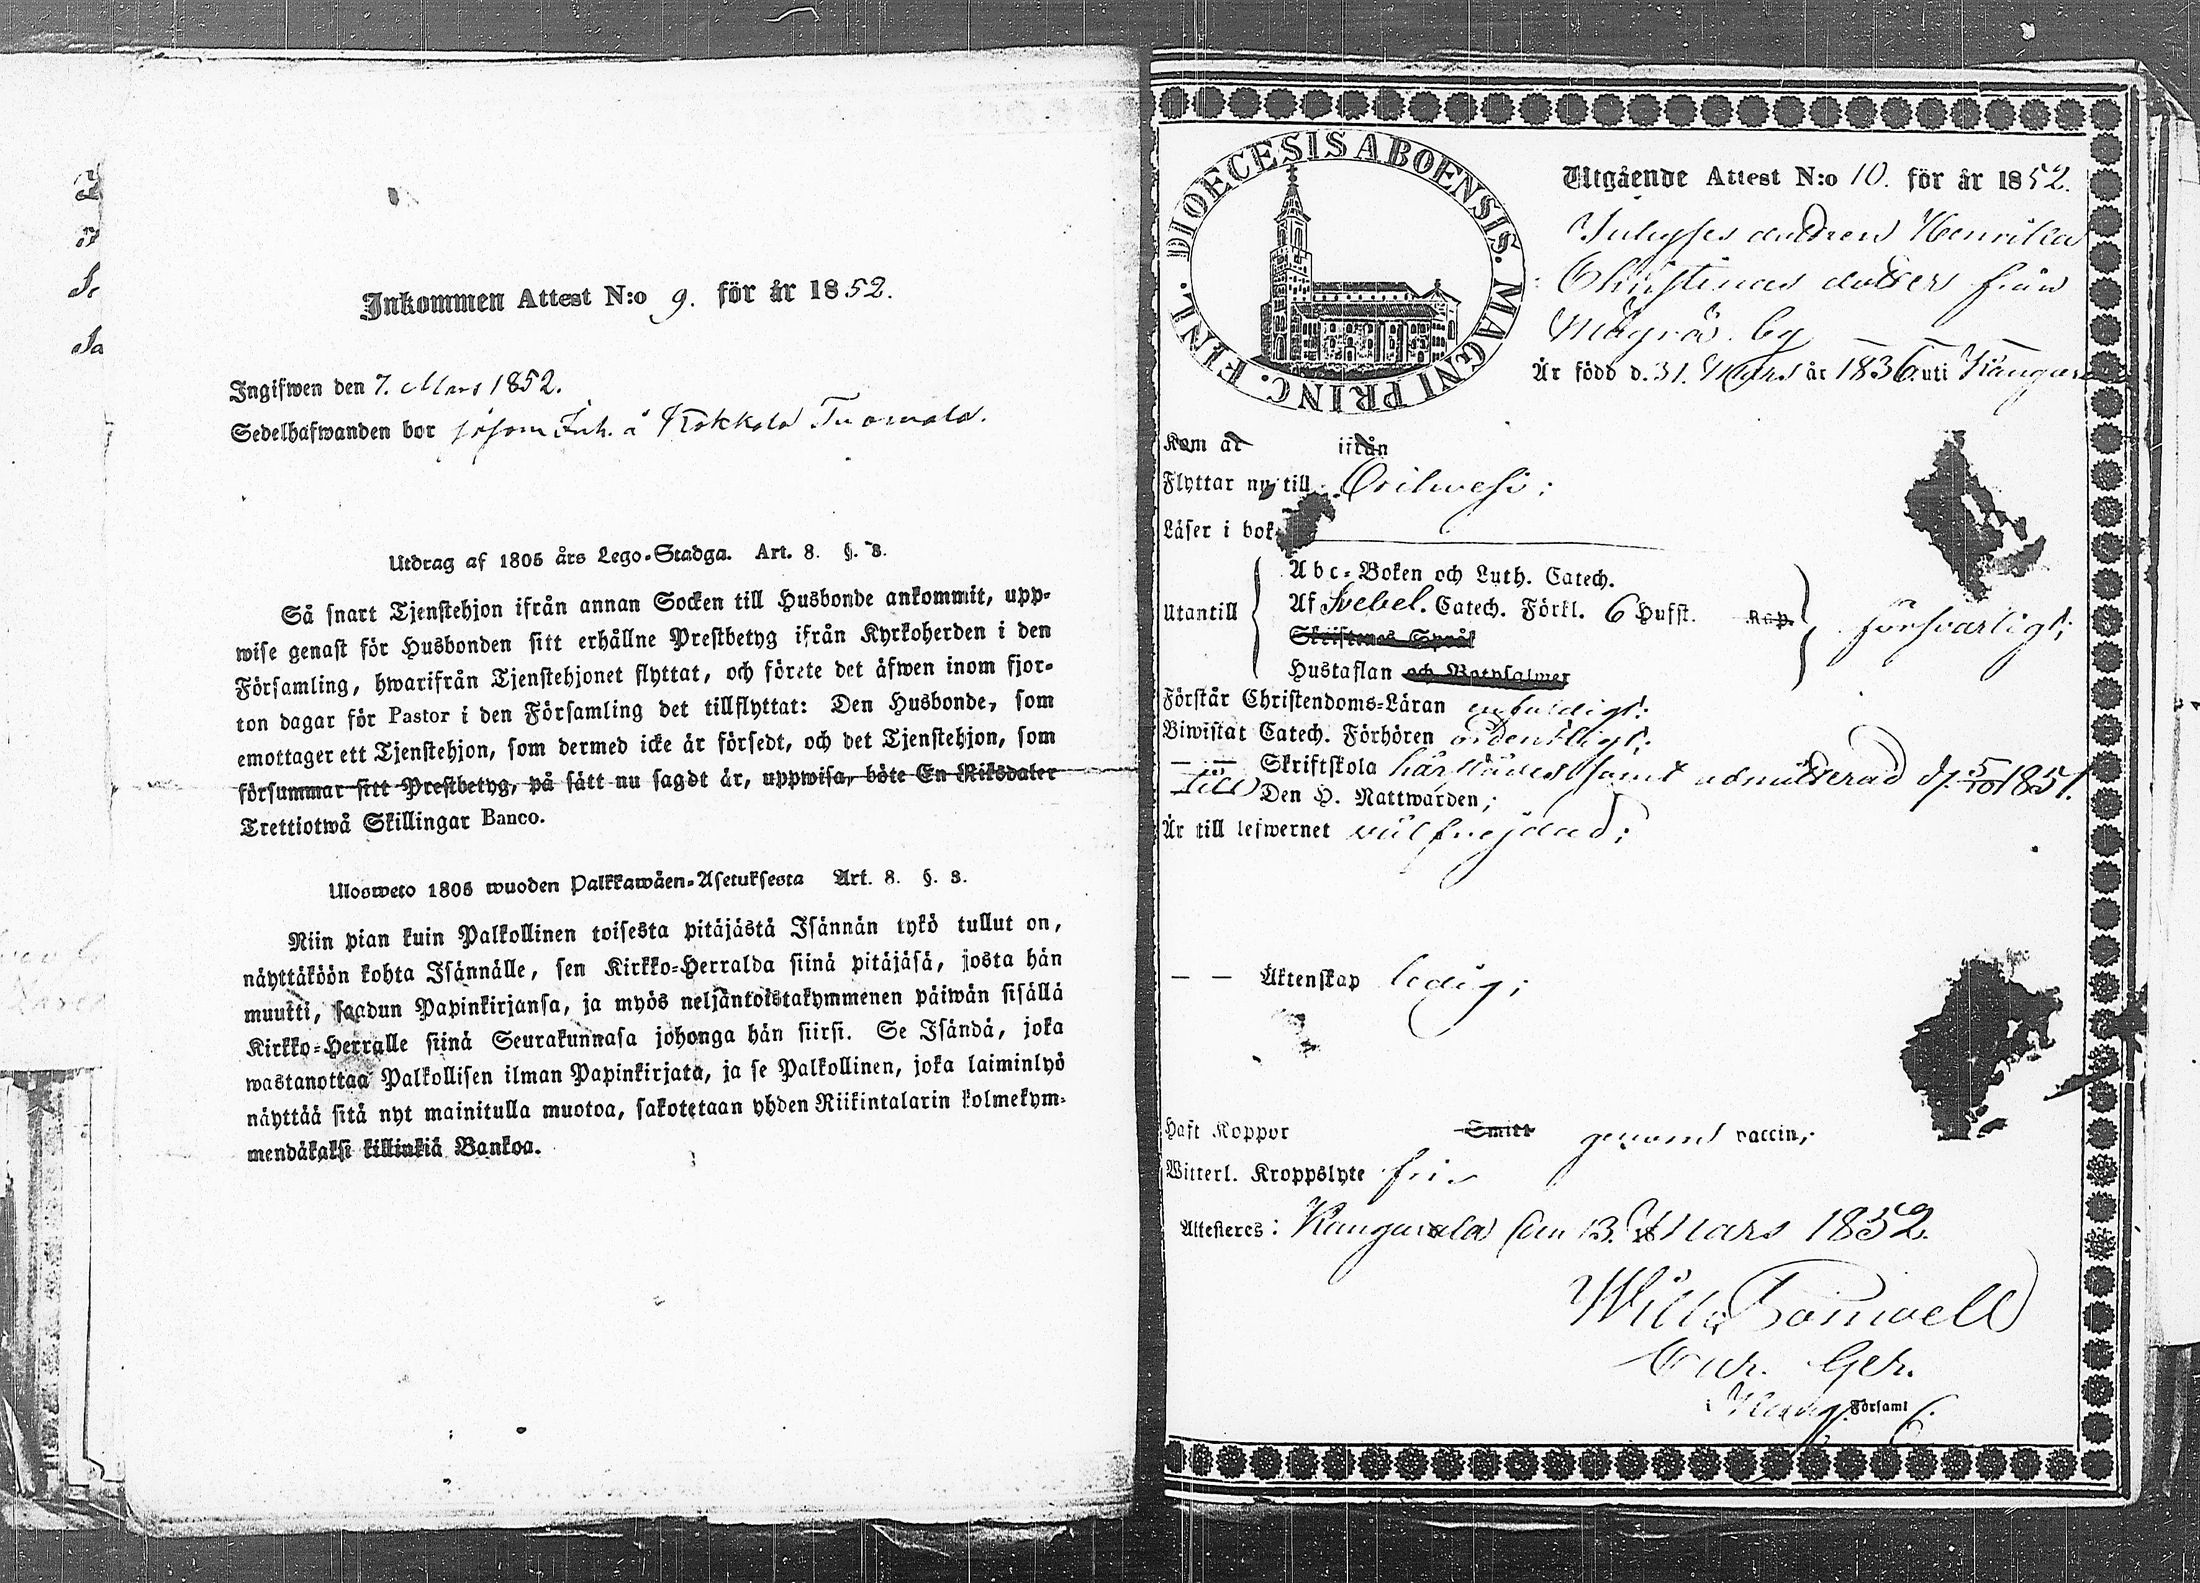 Inkommen Attest N:o 9. för år 1852.
Ingifwen den 7. Mars 1852.
Sedelhafwanden bor såsom Inh. å Kokkola Tuomola.
Utdrag af 1805 års Lego-Stadga. Art. 8. §. 3.
Så snart Tjenstehjon ifrån annan Socken till Husbonde ankommit, upp-
wise genast för Husbonden sitt erhållne Prestbetyg ifrån Kyrkoherden i den
Församling, hwarifrån Tjenstehjonet flyttat, och förete det äfwen inom fjor-
ton dagar för Pastor i den Församling det tillflyttat: Den Husbonde, som
emottager ett Tjenstehjon, som dermed icke är försedt, och det Tjenstehjon, som
försummar sitt Prestbetyg, på sätt nu sagdt är, uppwisa, böte En Riksdaler
Trettiotwå Skillingar Banco.
Ulosweto 1805 wuoden Palkkawäen-Asetuksesta Art. 8. §. 3.
Niin pian kuin Palkollinen toisesta pitäjästä Isännän tykö tullut on,
näyttäköön kohta Isännälle, sen Kirkko-Herralda siinä pitäjäsä, josta hän
muutti, saadun Papinkirjansa, ja myös neljäntoistakymmenen päiwän sisällä
Kirkko-Herralle siinä Seurakunnasa johonga hän siirsi. Se Isändä, joka
wastanottaa Palkollisen ilman Papinkirjata, ja se Palkollinen, joka laiminlyö
näyttää sitä nyt mainitulla muotoa, sakotetaan yhden Riikintalarin kolmekym-
mendäkaksi killinkiä Bankoa.
DIOECESIS ABOENSIS. MAGNI PRINC. FINL.
Utgående Attest N:o 10. för år 1852.
Henrika
Christina dotter från
by
Är född d. 31. Mars år 1836. uti Kangasala
Kom år ifrån
Flyttar nu till Orihwesi;
Läser i bok
Utantill
Abc-Boken och Luth. Catech.
Af Svebel. Catech. Förkl. 6 Hufst. Kap. försvarligt;
Skriftenes Språk
Hustaflan och Botpsalmer
Förstår Christendoms-Läran enfaldigt;
Biwistat Catech. Förhören ordentligt;
— — Skriftskola härstädes samt admitterad d. 5/10 1851.
till Den H. Nattwarden;
Är till lefwernet välfrejdad;
— — Äktenskap ledig;
Haft Koppor Smitt genom vaccin;
Witterl. Kroppslyte fri
Attesteras: Kangasala den 13. Mars 1852.
Wilh.
Cur. Ger.
i Kang. Församl